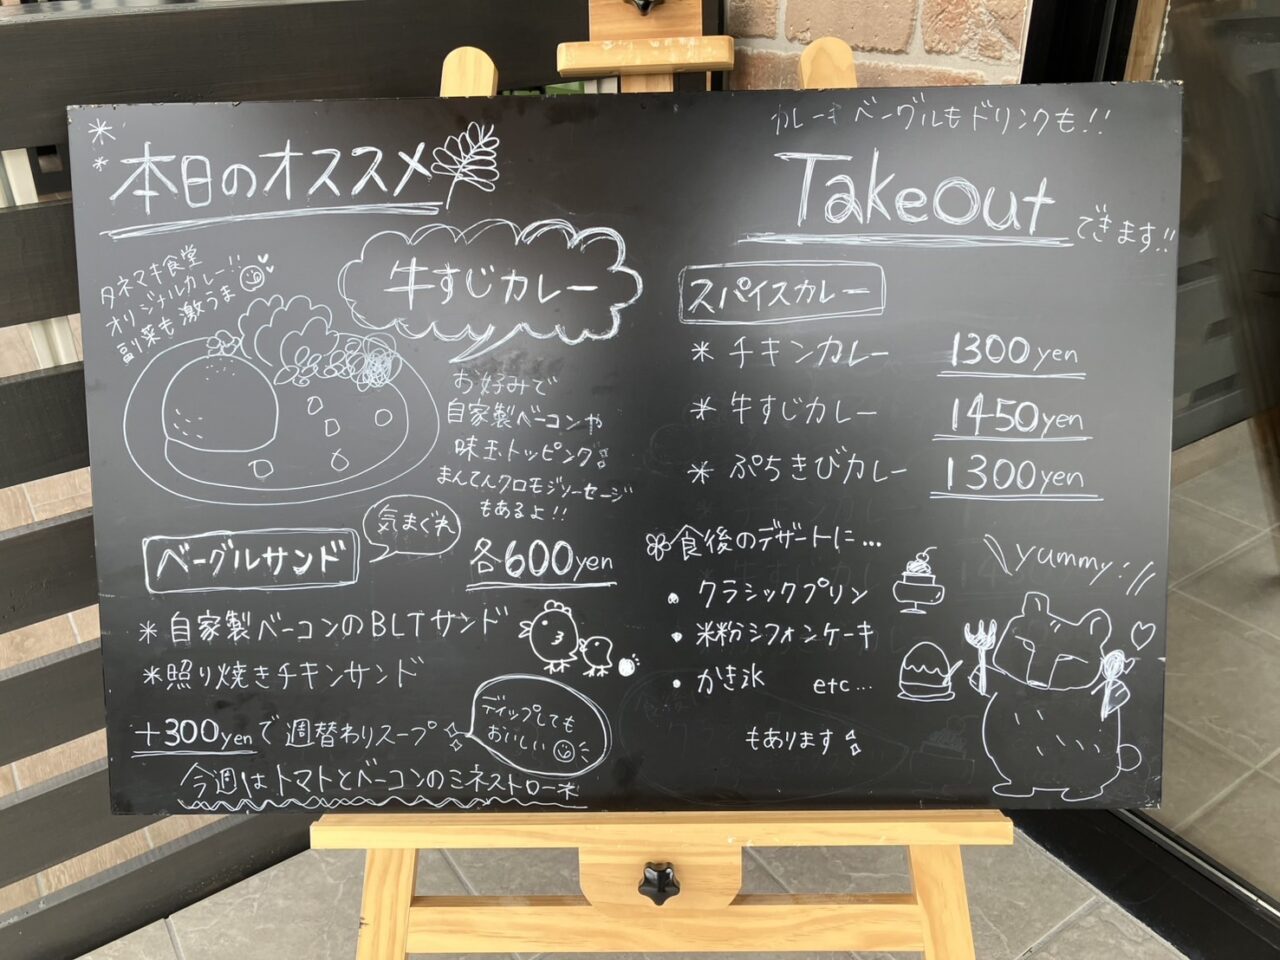 本日のオススメ
タネマキ食堂
オリジナルカレー!!
副菜も激うま
牛すじカレー
お好みで
自家製ベーコンや
味玉トッピング
まんてんクロモジソーセージ
もあるよ!!
ベーグルサンド
気まぐれ
各600yen
*自家製ベーコンのBLTサンド
*照り焼きチキンサンド
+300yenで週替わりスープ
ディップしても
おいしい
今週はトマトとベーコンのミネストローネ
カレーもベーグルもドリンクも!!
Takeout
できます!!
スパイスカレー
*チキンカレー 1300yen
*牛すじカレー 1450yen
*ぷちきびカレー 1300yen
食後のデザートに…
・クラシックプリン
・米粉シフォンケーキ
・かき氷 etc…
もあります
\yummy!//